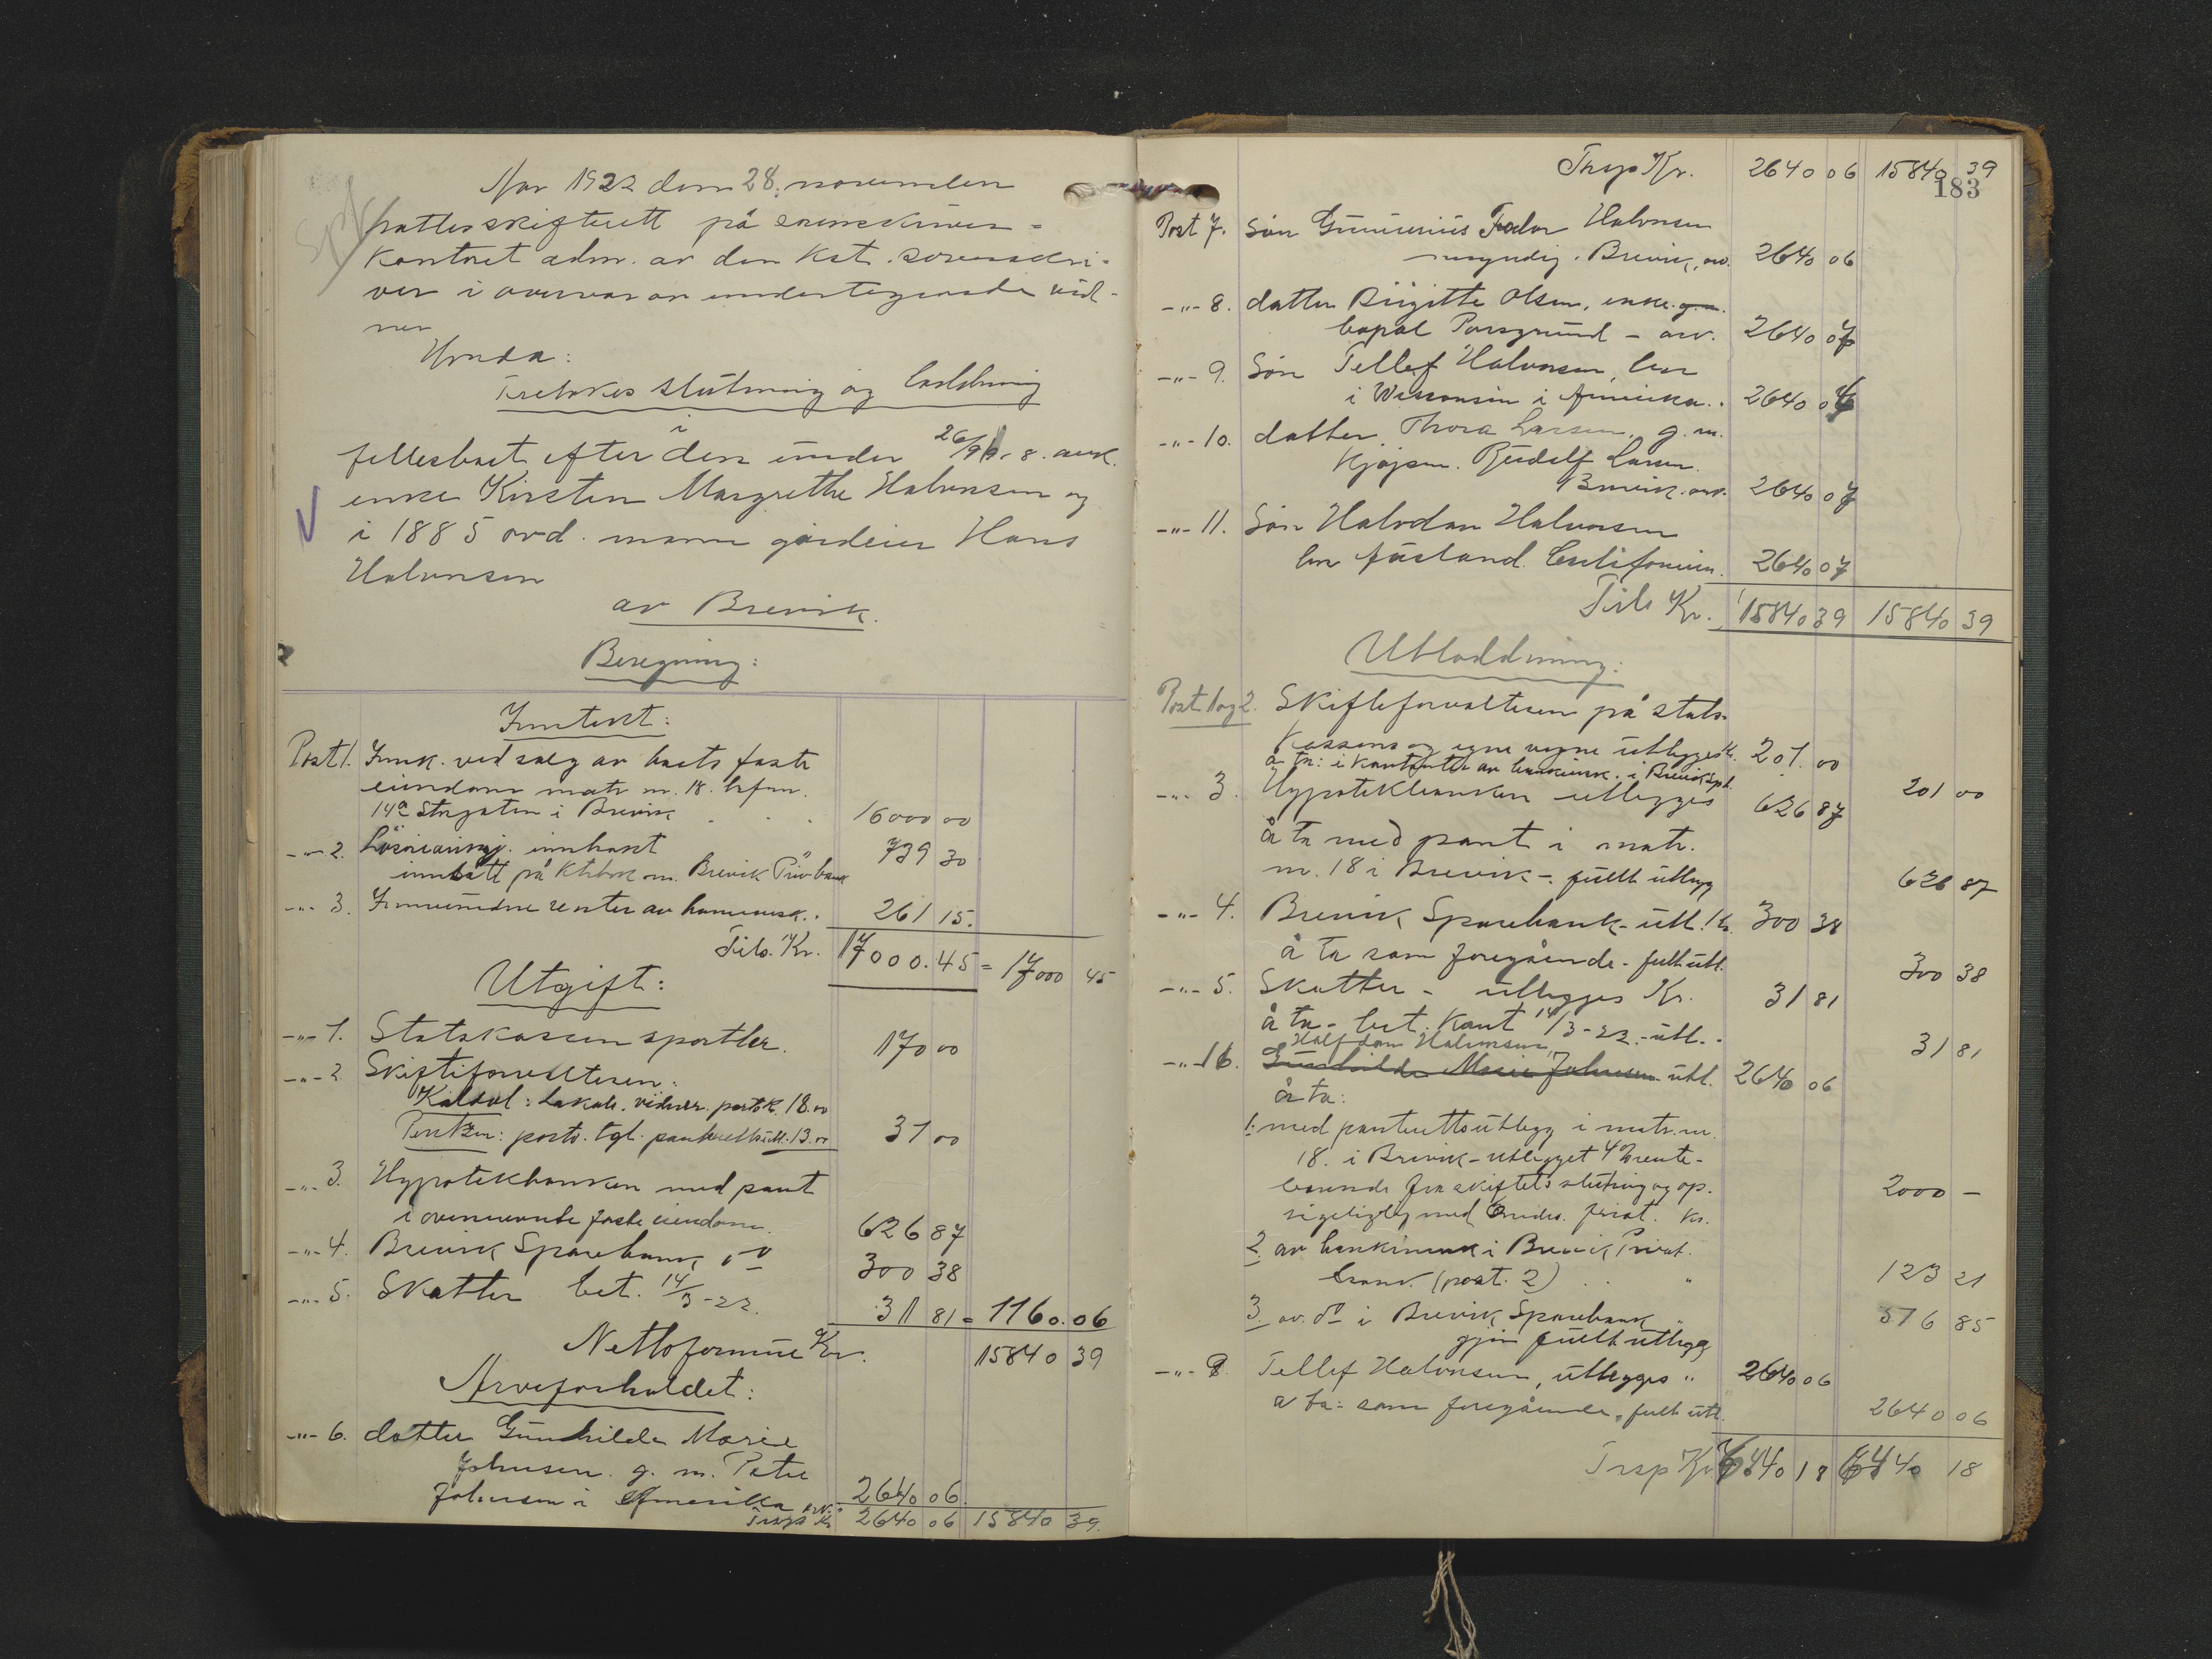 År 1922 den 28. november
hattes skifterett på sorenskriver-
kontoret adm. av den kst. sorenskri-
ver i overvær av undertegnede vid-
ner
Hvorda:
Foretokes slutning og lodning
i
fellesboet efter den under 26/9 8. avd.
enke Kirsten Margrethe Halvorsen og
i 1885 avd. mann gårdeier Hans
Halvorsen
av Brevik.
Beregning:
Inntekt:
Post 1. Innk. ved salg av boets faste
eiendom matr. nr. 18. brfnr.
14a Storgaten i Brevik . . . 16000 00
-"- 2. innbort 739 30
innsatt på Ktrbok m. Brevik Priv. bank
-"- 3. Innvundne renter av bankinnsk. . 261 15.
Tils. Kr. 17000.45 = 17000 45
Utgift:
-"- 1. Statskassen sportler. 170 00
-"- 2. Skifteforvalteren:
Kaldal: lokale. vidner. portok. 18.00
porto. tgl. 13.00 31 00
-"- 3. Hypotekbanken med pant
i ovennevnte faste eiendom. 626 87
-"- 4. Brevik Sparebank do 300 38
-"- 5. Skatter bet. 14/3-22. 31 81 = 1160.06
Nettoformue Kr. 15840 39
Arveforholdet:
-"- 6. datter Gunhilde Marie
Johnsen. g. m. Peter
Johnsen i Amerika arv. 2640 06.
Trsp Kr 2640 06 15840 39.
Trsp Kr. 2640 06 15840 39
183
Post 7. Søn Gunerius Fredor Halvorsen
myndig. Brevik, arv. 2640 06
-"- 8. datter Birgitte Olsen, enke. g. m.
bopæl Porsgrund - arv. 2640 07
-"- 9. Søn Tellef Halvorsen, bor
i Wisconsin i Amerika. . 2640 06
-"- 10. datter Thora Larsen, g. m.
Kjøpm. Rudolf Larsen.
Brevik. arv. 2640 07
-"- 11. Søn Halvdan Halvorsen
bor California. 2640 07
Tils Kr. 15840 39 15840 39
Utloddning:
Post 1 og 2. Skifteforvalteren på stats-
kassens og egne vegne utlegges Kr. 201.00
å ta: i kontanter av bankinnsk. i Brevik Spb. 201 00
-"- 3. Hypotekbanken utlegges 626 87
å ta med pant i matr.
nr. 18 i Brevik -. fullt utlegg 626 87
-"- 4. Brevik Sparebank - utl. Kr. 300 38
å ta som foregående - fullt utl. 300 38
-"- 5. Skatter - utlegges Kr. 31 81
å ta - bet. kont 14/3-22. - utl. . 31 81
Halfdan Halvorsen
-"- 16. Gunhilde Marie Johnsen utl. 2640 06
å ta:
1. med panterettsutlegg i matr. nr.
18. i Brevik - utlegget 4% rente-
bærende fra skiftets slutning og op-
sigeligt med 6 mdrs. frist. Kr. 2000 -
2. av bankinnsk i Brevik Privat.
bank. (post. 2) . . " 123 21
3. av do i Brevik Sparebank " 516 85
gjør fullt utlegg
-"- 9. Tellef Halvorsen, utlegges " 2640 06
å ta: som foregående, fullt utl. 2640 06
Trsp Kr 6440 18 6440 18